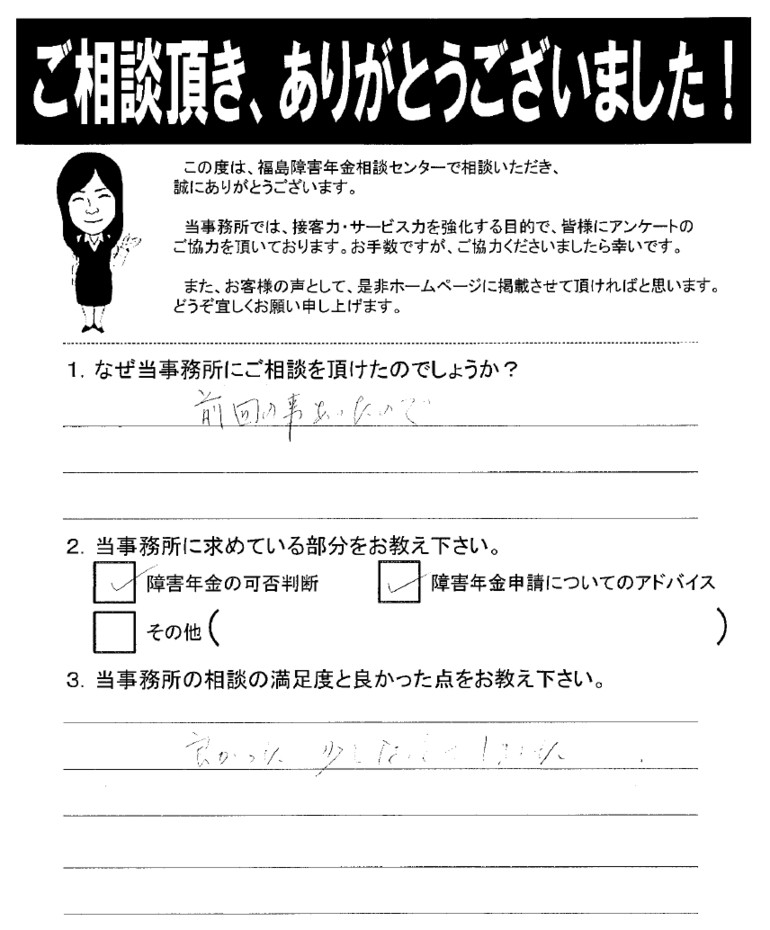 ご相談頂き、ありがとうございました！
この度は、福島障害年金相談センターで相談いただき、
誠にありがとうございます。
当事務所では、接客力・サービス力を強化する目的で、皆様にアンケートの
ご協力を頂いております。お手数ですが、ご協力くださいましたら幸いです。
また、お客様の声として、是非ホームページに掲載させて頂ければと思います。
どうぞ宜しくお願い申し上げます。
1. なぜ当事務所にご相談を頂けたのでしょうか？
前回の事あったので
2. 当事務所に求めている部分をお教え下さい。
障害年金の可否判断 障害年金申請についてのアドバイス
その他( )
3. 当事務所の相談の満足度と良かった点をお教え下さい。
良かった 少し